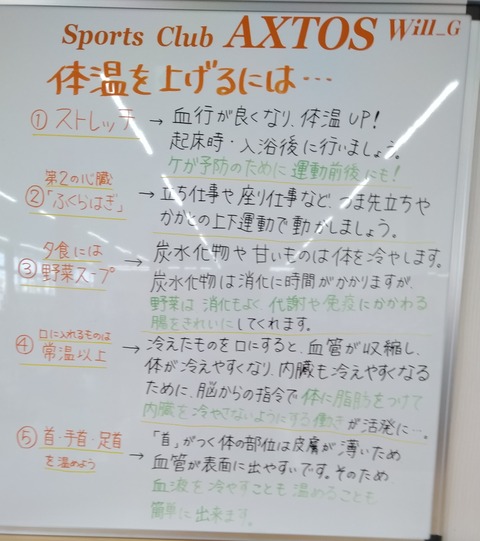 Sports Club AXTOS Will_G
体温を上げるには…
① ストレッチ → 血行が良くなり、体温UP!
起床時・入浴後に行いましょう。
ケガ予防のために運動前後にも!
第2の心臓
② 「ふくらはぎ」 → 立ち仕事や座り仕事など、つま先立ちや
かかとの上下運動で動かしましょう。
夕食には
③ 野菜スープ → 炭水化物や甘いものは体を冷やします。
炭水化物は消化に時間がかかりますが、
野菜は消化もよく代謝や免疫にかかわる
腸をきれいにしてくれます。
口に入れるものは
④ 常温以上 → 冷えたものを口にすると、血管が収縮し、
体が冷えやすくなり、内臓も冷えやすくなる
ために、脳からの指令で体に脂肪をつけて
内臓を冷やさないようにする働きが活発に…。
⑤ 首・手首・足首
を温めよう → 「首」がつく体の部位は皮膚が薄いため
血管が表面に出やすいです。そのため
血液を冷やすことも温めることも
簡単に出来ます。